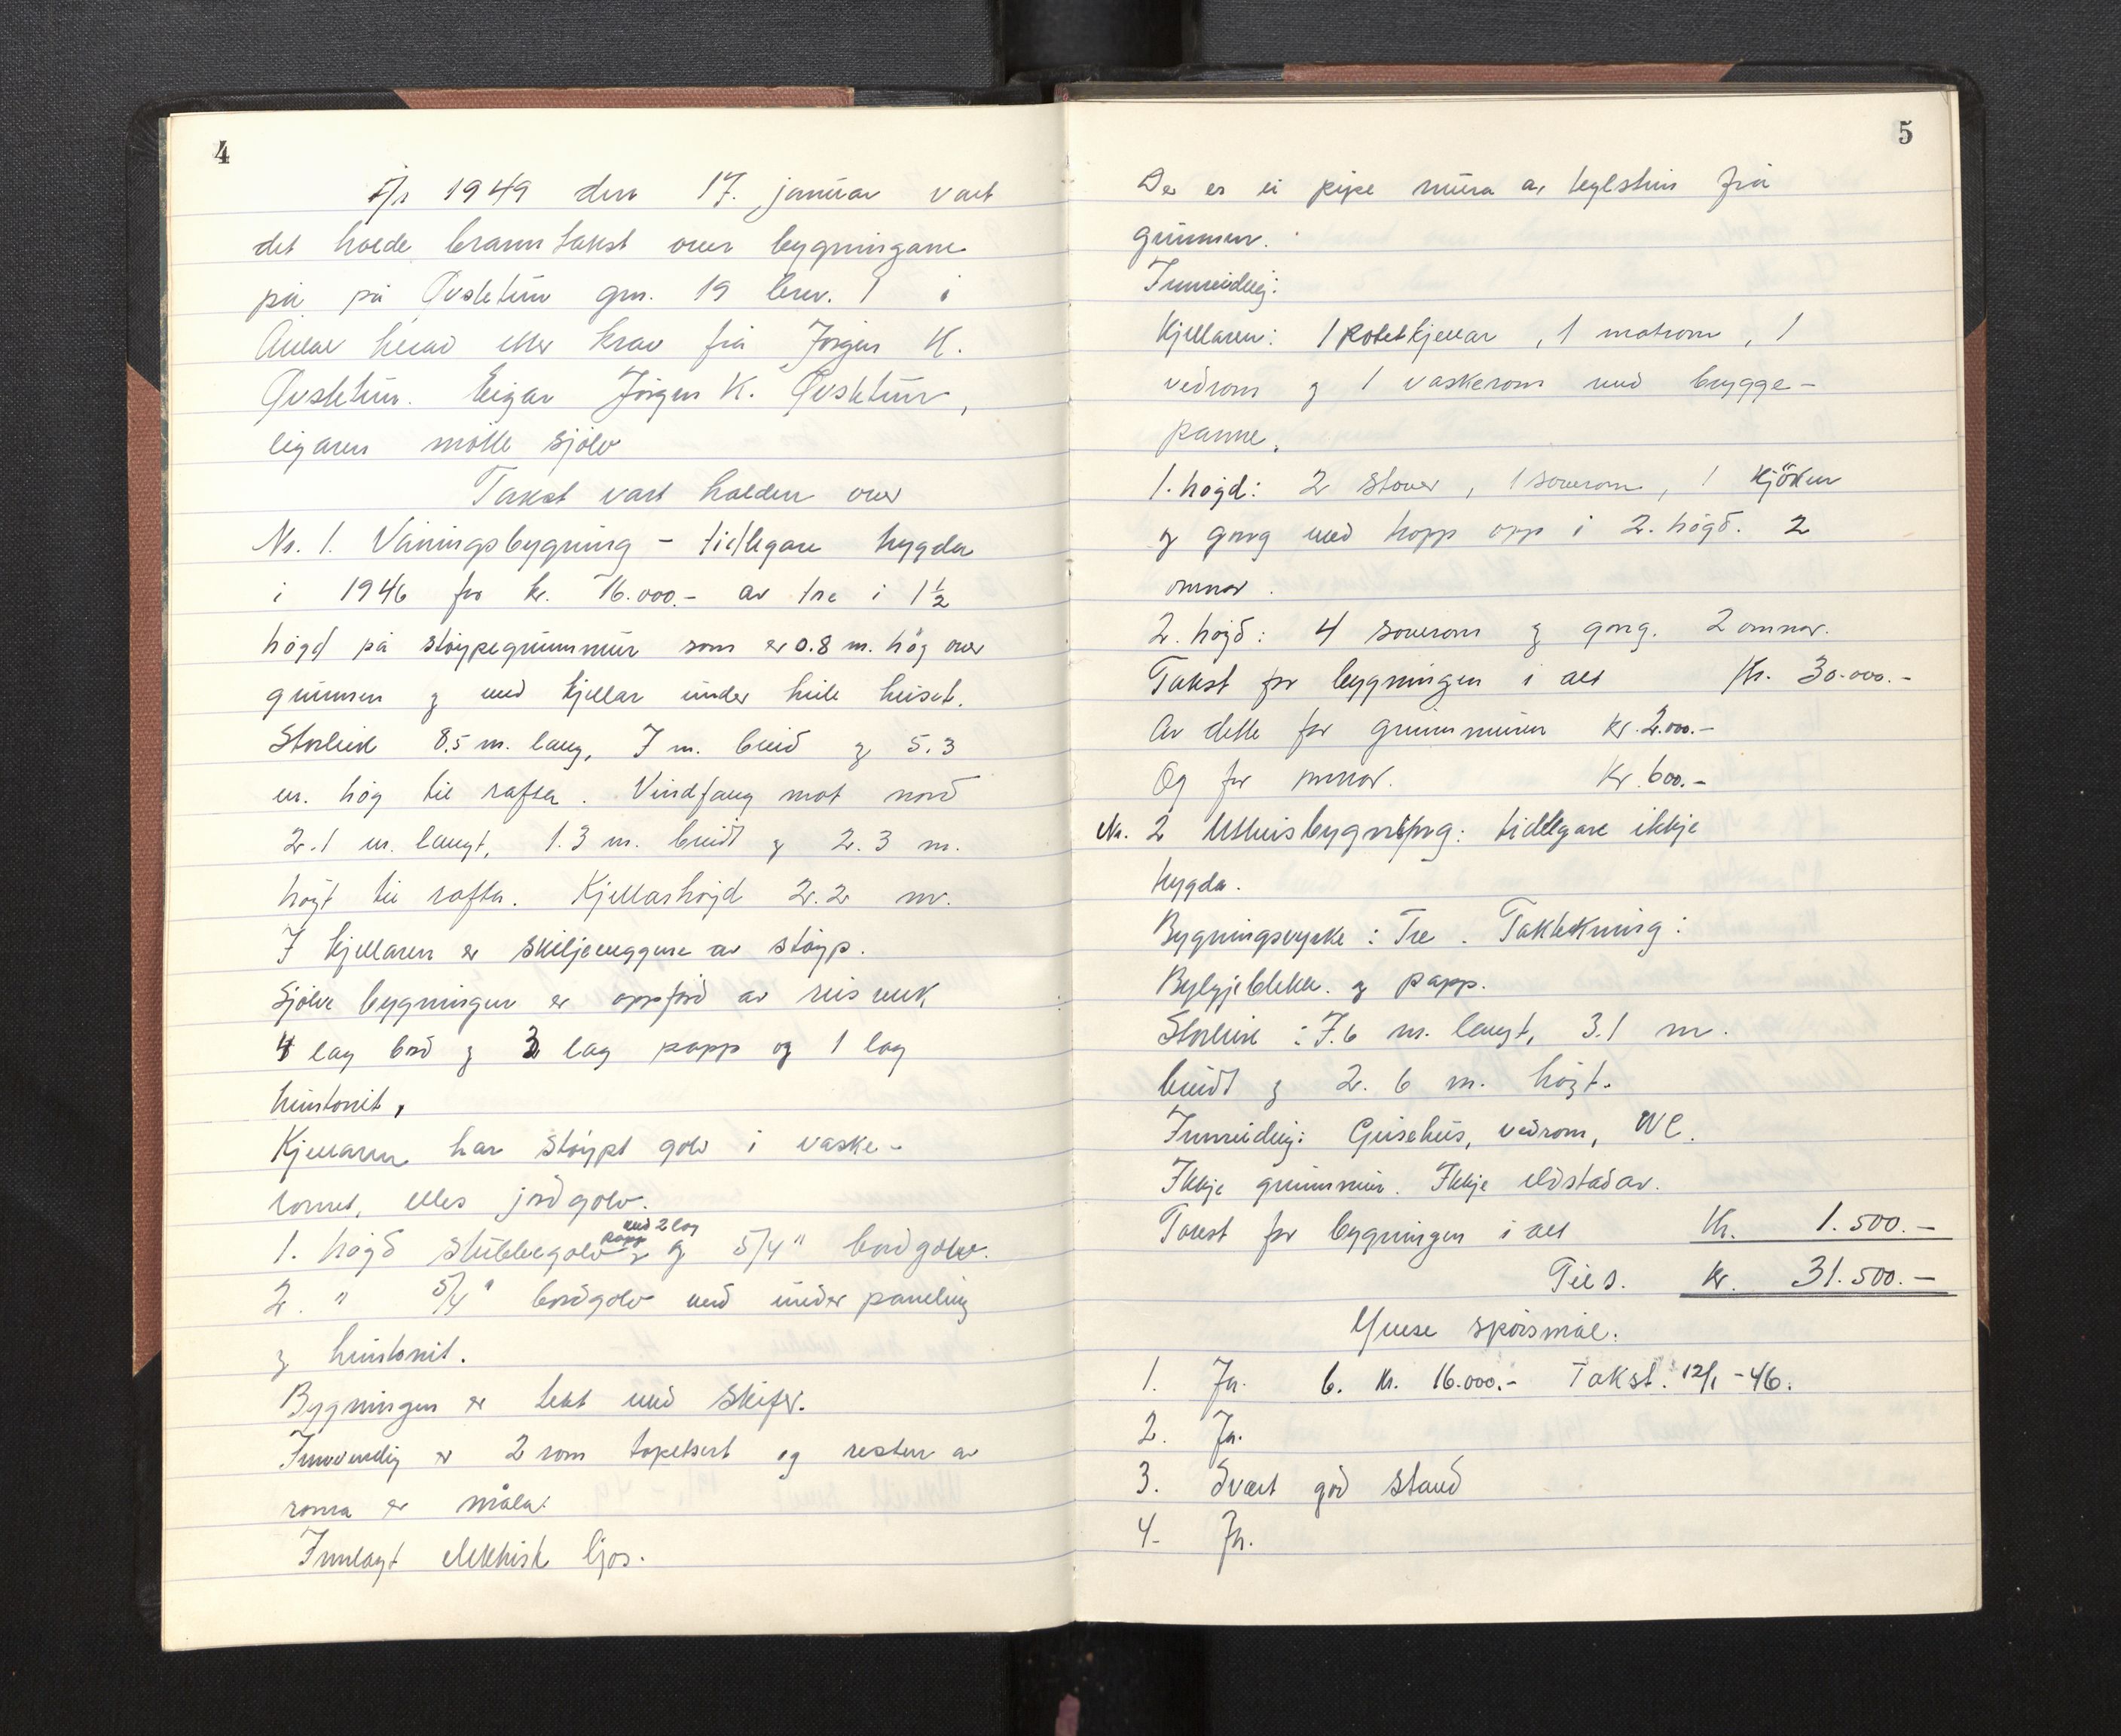 4
År 1949 den 17. januar vart
det halde branntakst over bygningane
på på Øvsletun gn. 19 brnr. 1 i
herad etter krav frå Jörgen K.
Øvsletun. Eigar Jörgen K. Øvsletun,
eigaren møtte sjölv
Takst vart halden over
Nr. 1. Våningsbygning – tidlegare trygda
i 1946 for kr. 16.000.- av tre i 1½
högd på stöypegrunnmur som er 0.8 m. hög over
grunnen og med kjellar under heile huset.
Storleik 8.5 m. lang, 7 m. breid og 5.3
m. hög til rafta. Vindfang mot nord
2.1 m. langt, 1.3 m. breidt og 2.3 m.
högt til rafta. Kjellarhögd 2.2 m.
I kjellaren er skiljeveggene av stöyp.
Sjölve bygningen er oppförd av reisverk
4 lag bord og 3 lag papp og 1 lag
huntonit.
Kjellaren har stöypt golv i vaske-
romet, elles jordgolv.
med 2 lag
papp
1. högd stubbegolv og 5/4" bordgolv.
2. " 5/4" bordgolv med under paneling
og huntonit.
Bygningen er tekt med skifer.
Innvendig er 2 rom tapetsert og resten av
roma er måla.
Innlagt elektrisk ljos.
5
Der er ei pipe mura av teglstein frå
grunnen.
Innreiding:
Kjellaren: 1 potetkjellar, 1 matrom, 1
vedrom og 1 vaskerom med brygge-
panne.
1. högd: 2 stover, 1 soverom, 1 kjöken
og gang med tropp opp i 2. högd. 2
omnar.
2. högd: 4 soverom og gang. 2 omnar.
Takst for bygningen i alt Kr. 30.000.-
Av dette for grunnmuren Kr. 2.000.-
Og for omnar. Kr. 600.-
Nr. 2 Uthusbygning: tidlegare ikkje
trygda.
Bygningsvyrke: Tre. Taktekning:
Bylgjeblekk. og papp.
Storleik: 7.6 m. langt, 3.1 m.
breidt og 2.6 m. högt.
Innreiding: Grisehus, vedrom, WC.
Ikkje grunnmur. Ikkje eldstadar.
Takst for bygningen i alt Kr. 1.500.-
Tils. Kr. 31.500.-
Ymse spörsmål.
1. Ja. b. Kr. 16.000.- Takst. 12/1 -46.
2. Ja.
3. Svært god stand
4. Ja.